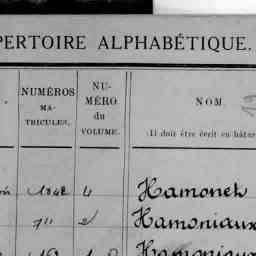 PERTOIRE ALPHABÉTIQUE.
NUMÉROS MA- TRICULES.
NU- MÉRO du VOLUME.
NOM.
(Il doit être écrit en bâtar
1842 4 Hamoneh
711 2 Hamoniaux
Hamoniaux